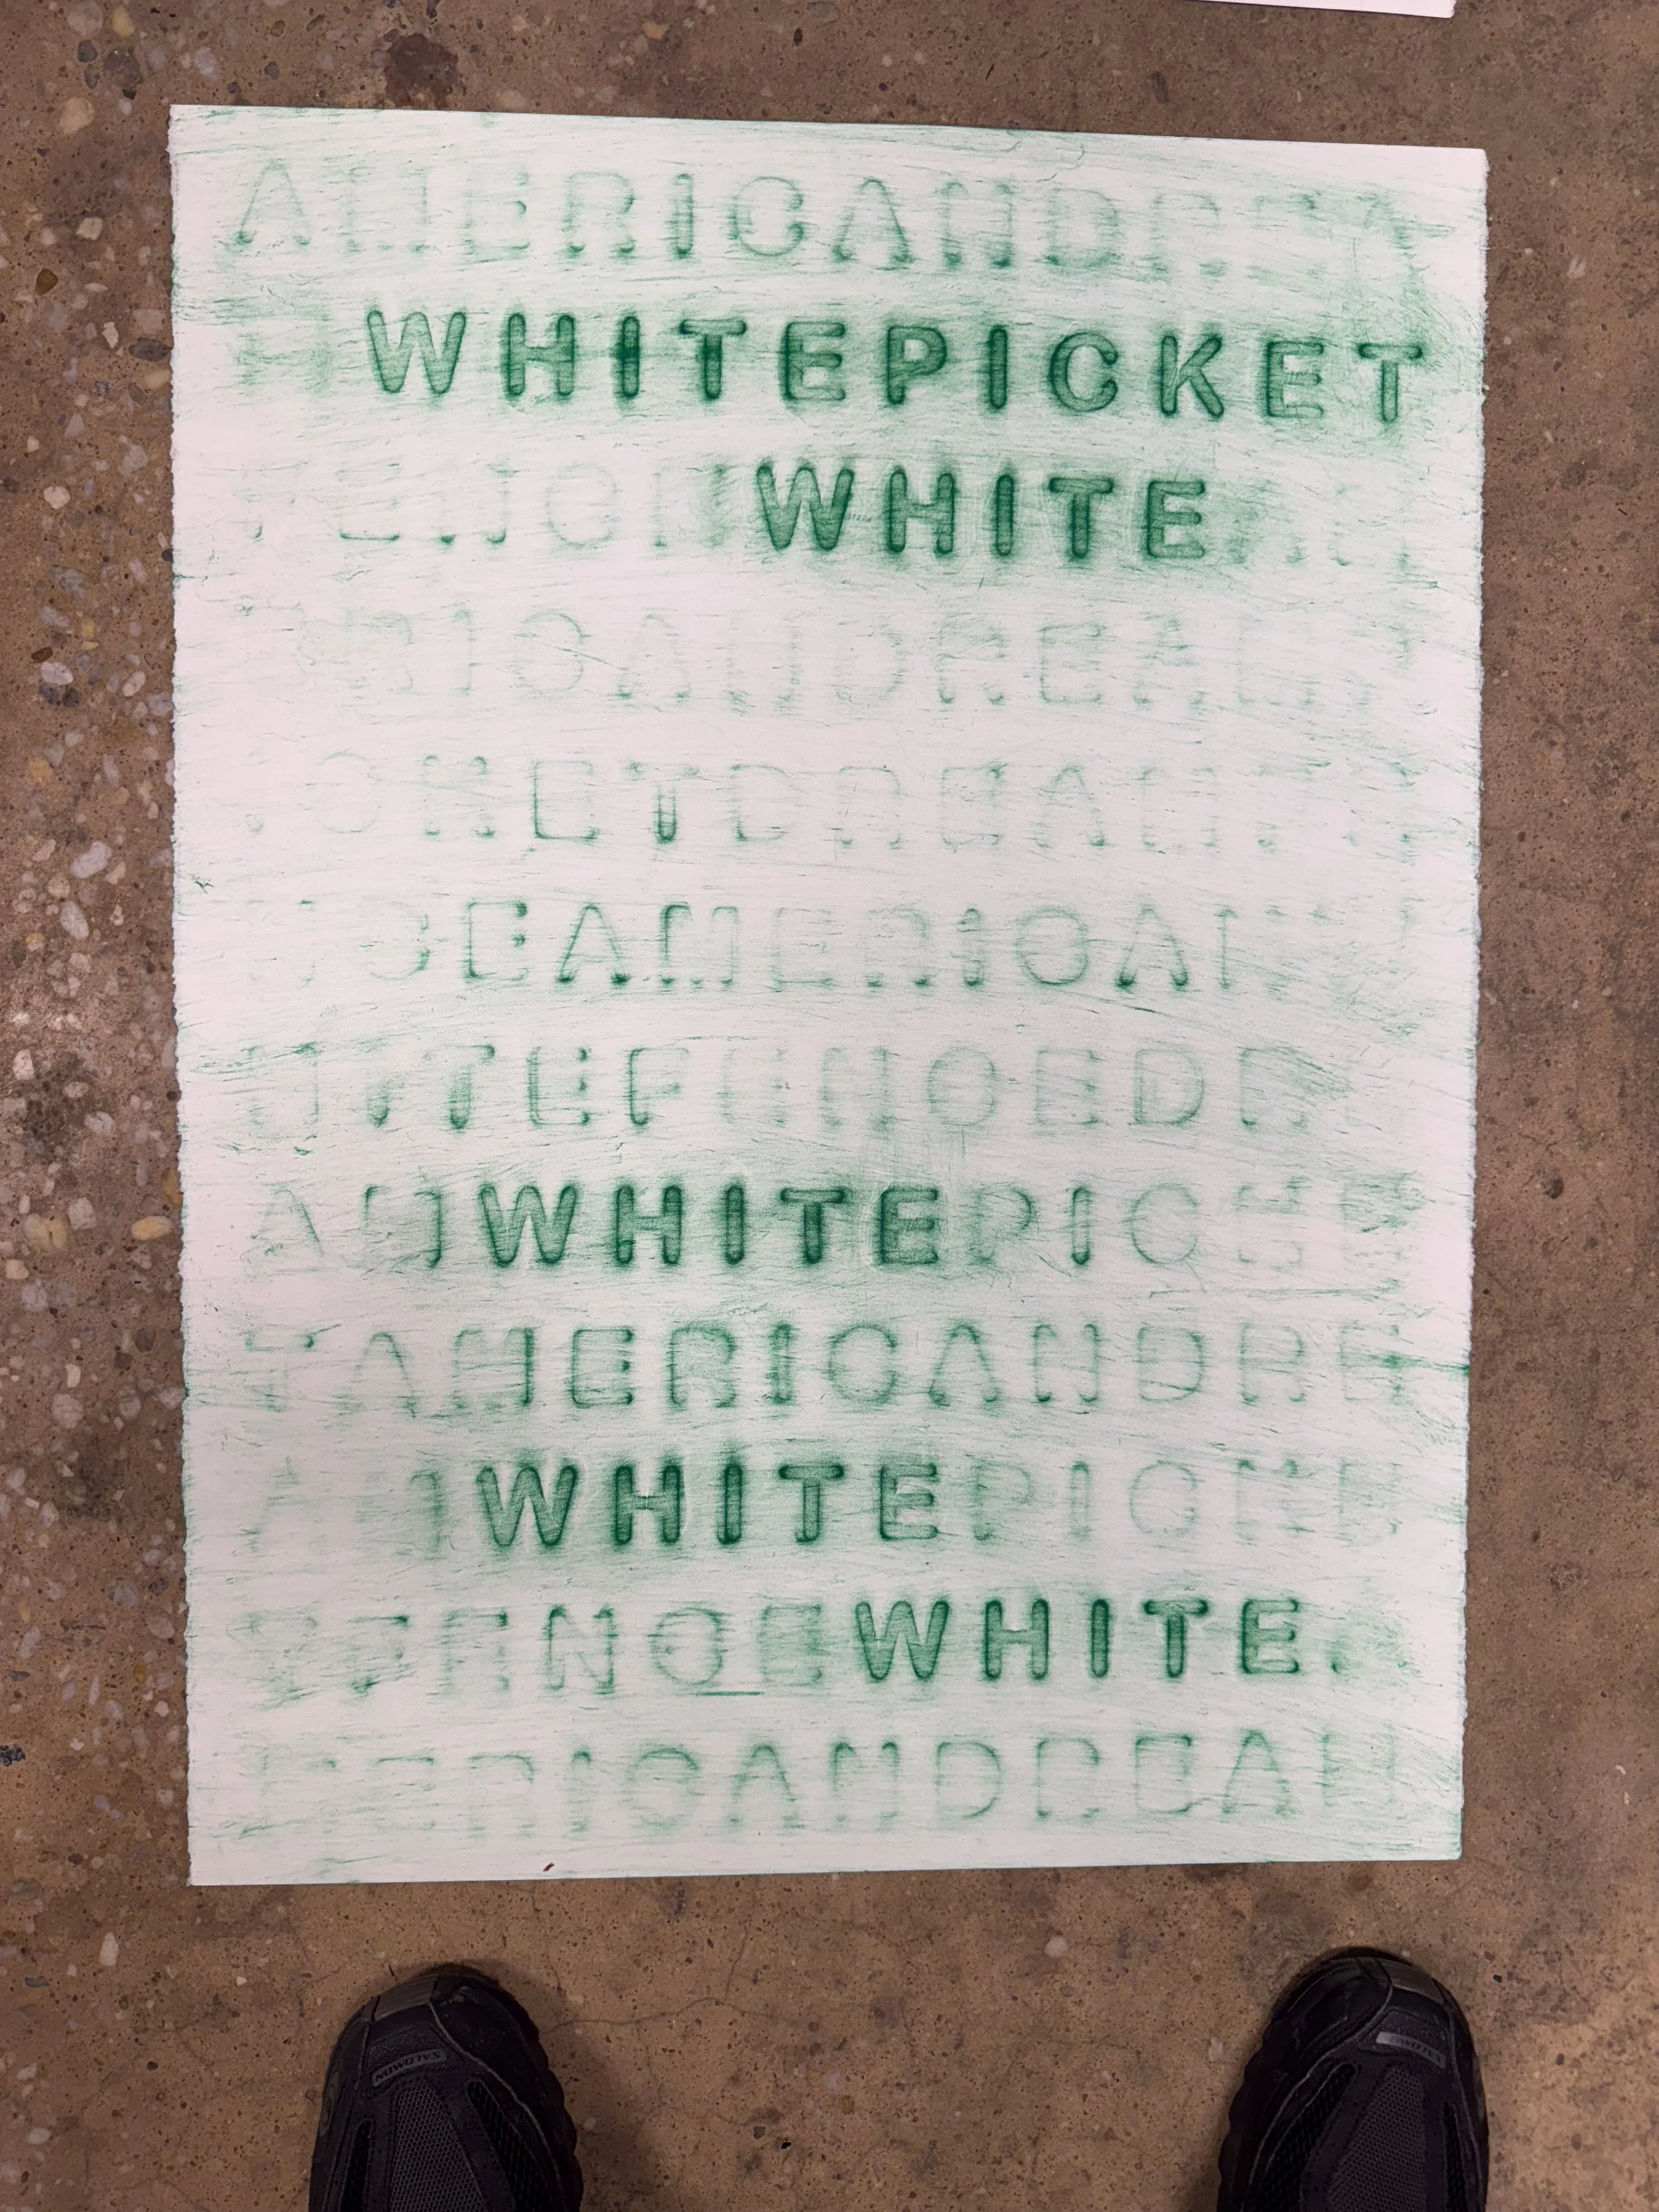 AMERICANDREA
WHITEPICKET
FENC WHITE
RICANDREAM
CKETDREAM
CEAMERICAN
ITEFENCEDR
AMWHITEPICKE
TAMERICANDRE
AMWHITEPICKE
FENCEWHITE.
ERICANDREAM
SALOMON
SALOMON